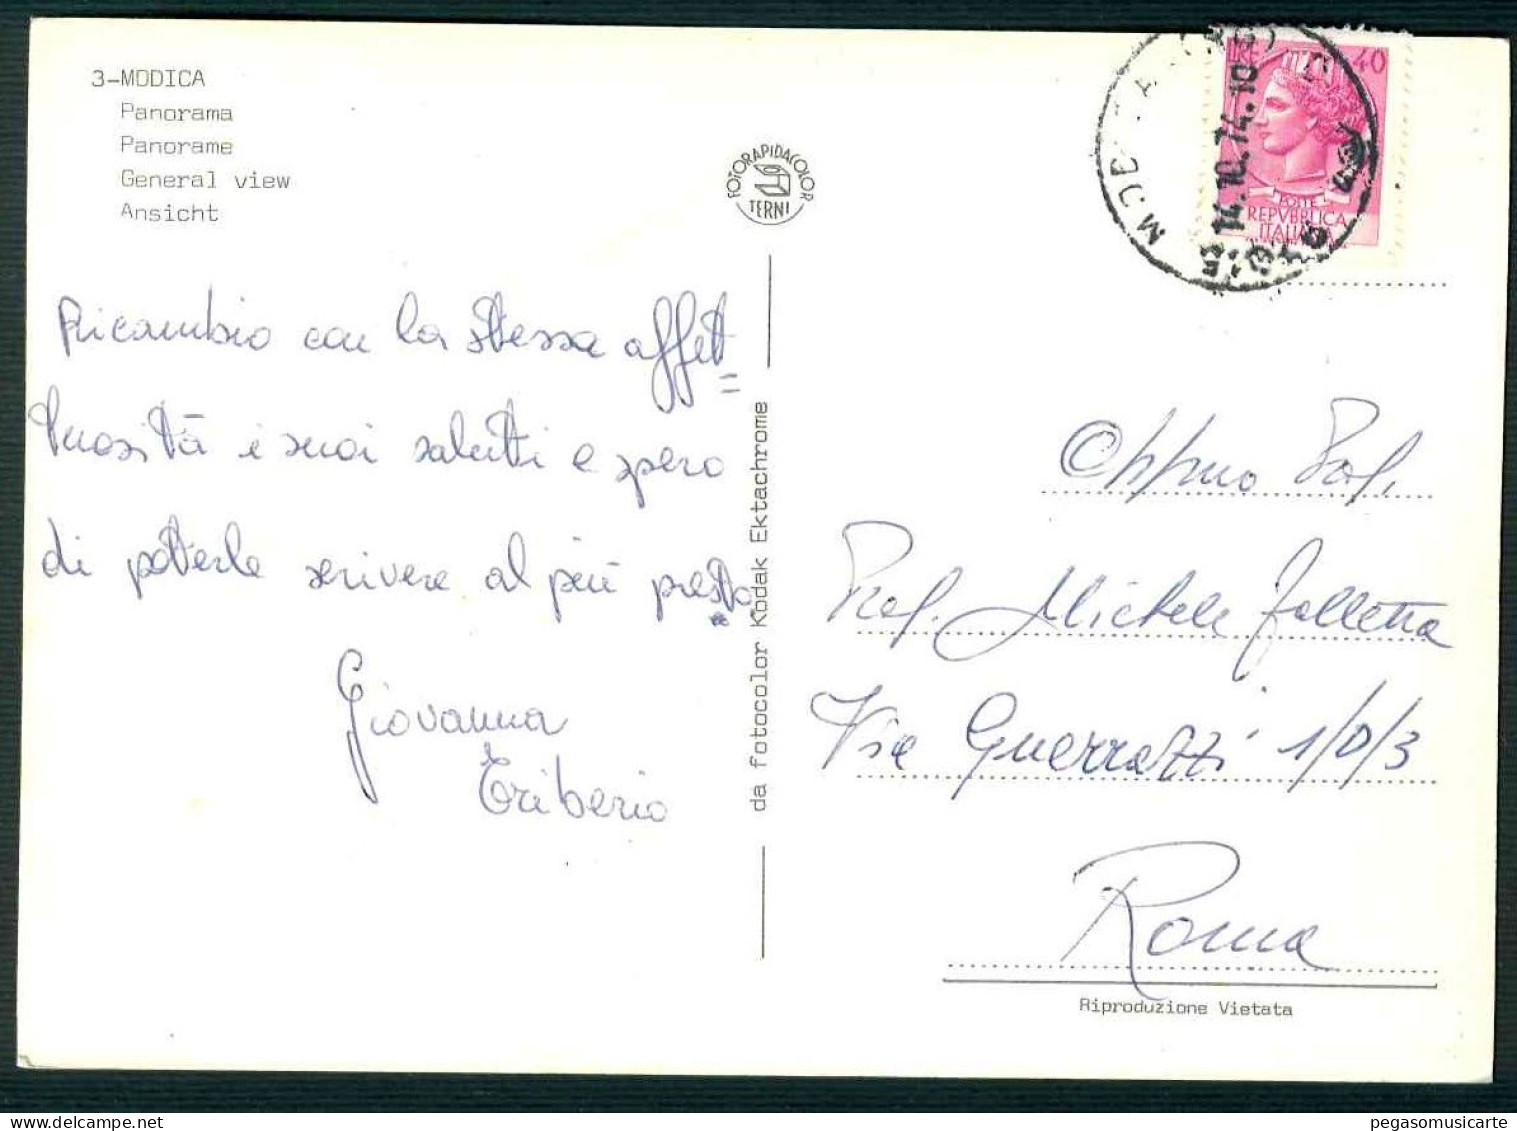 3-MODICA
Panorama
Panorame
General view
Ansicht
FOTORAPIDACOLOR
TERNI
Ricambio con la stessa affet=
tuosità i suoi saluti e spero
di poterle scrivere al più presto
Giovanna
Eriberio
da fotocolor Kodak Ektachrome
LIRE 40
POSTE
REPVBBLICA
ITALIANA
14.10.74.10
Prof. Michele Falletta
Via Guerrazzi 1/D/3
Roma
Riproduzione Vietata
pegasomusicarte.com